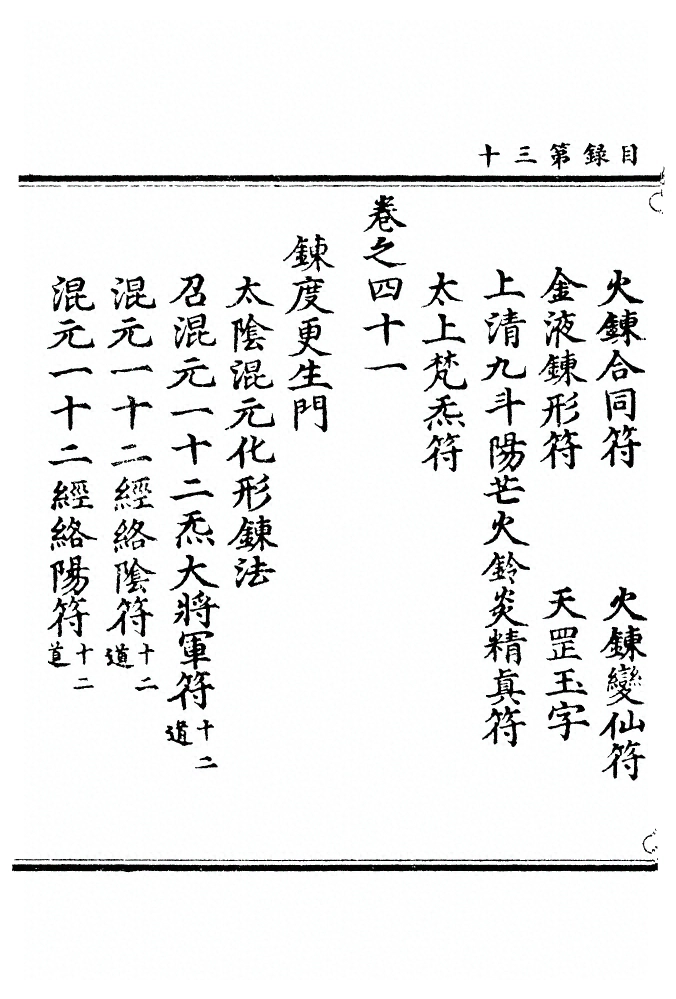 目錄第三十
火鍊合同符 火鍊變仙符
金液鍊形符 天罡玉字
上清九斗陽芒火鈴炎精眞符
太上梵炁符
卷之四十一
鍊度更生門
太陰混元化形鍊法
召混元一十二炁大將軍符十二道
混元一十二經絡陰符十二道
混元一十二經絡陽符十二道